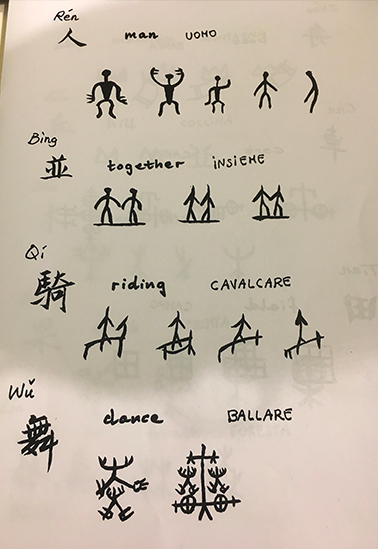 Rén
人 man UOMO
Bìng
並 together INSIEME
Qí
騎 riding CAVALCARE
Wǔ
舞 dance BALLARE